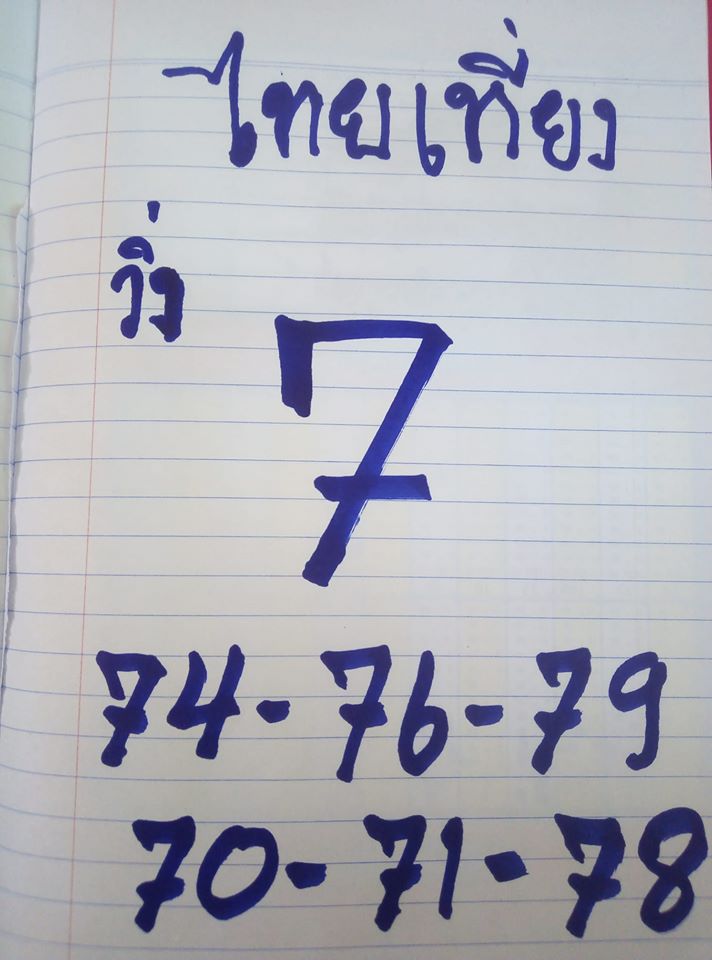 ไทยเที่ยง
วิ่ง
7
74-76-79
70-71-78